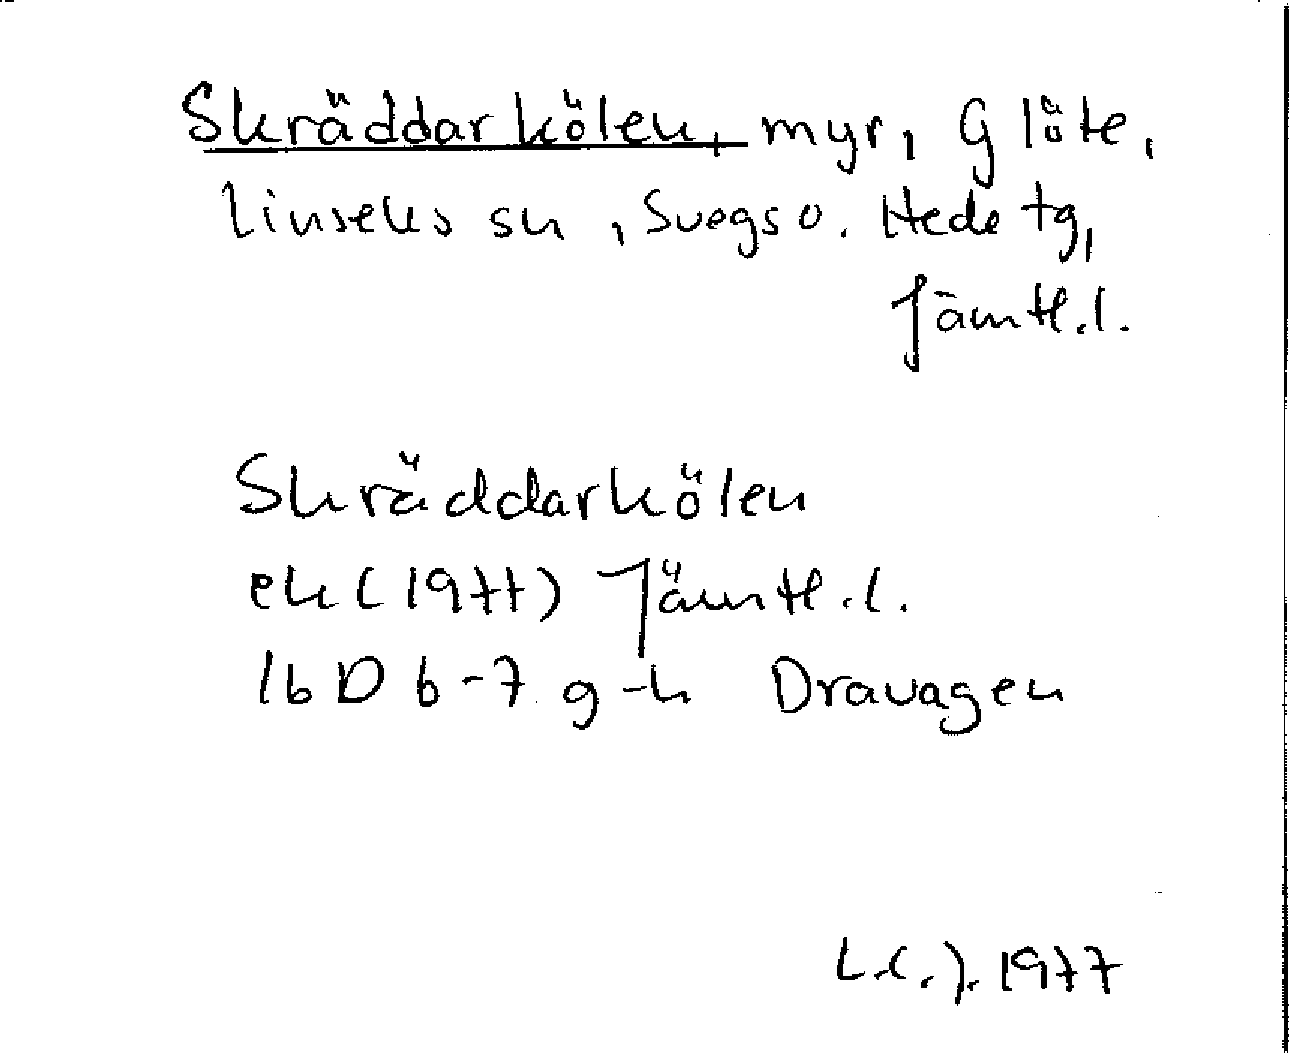 Skräddarkölen, myr, Glöte,
Linsells sn, Svegs o. Hede tg,
Jämtl. l.
Skräddarkölen
ek (1977) Jämtl. l.
16 D 6-7 g-h Dravagen
L.C.J. 1977